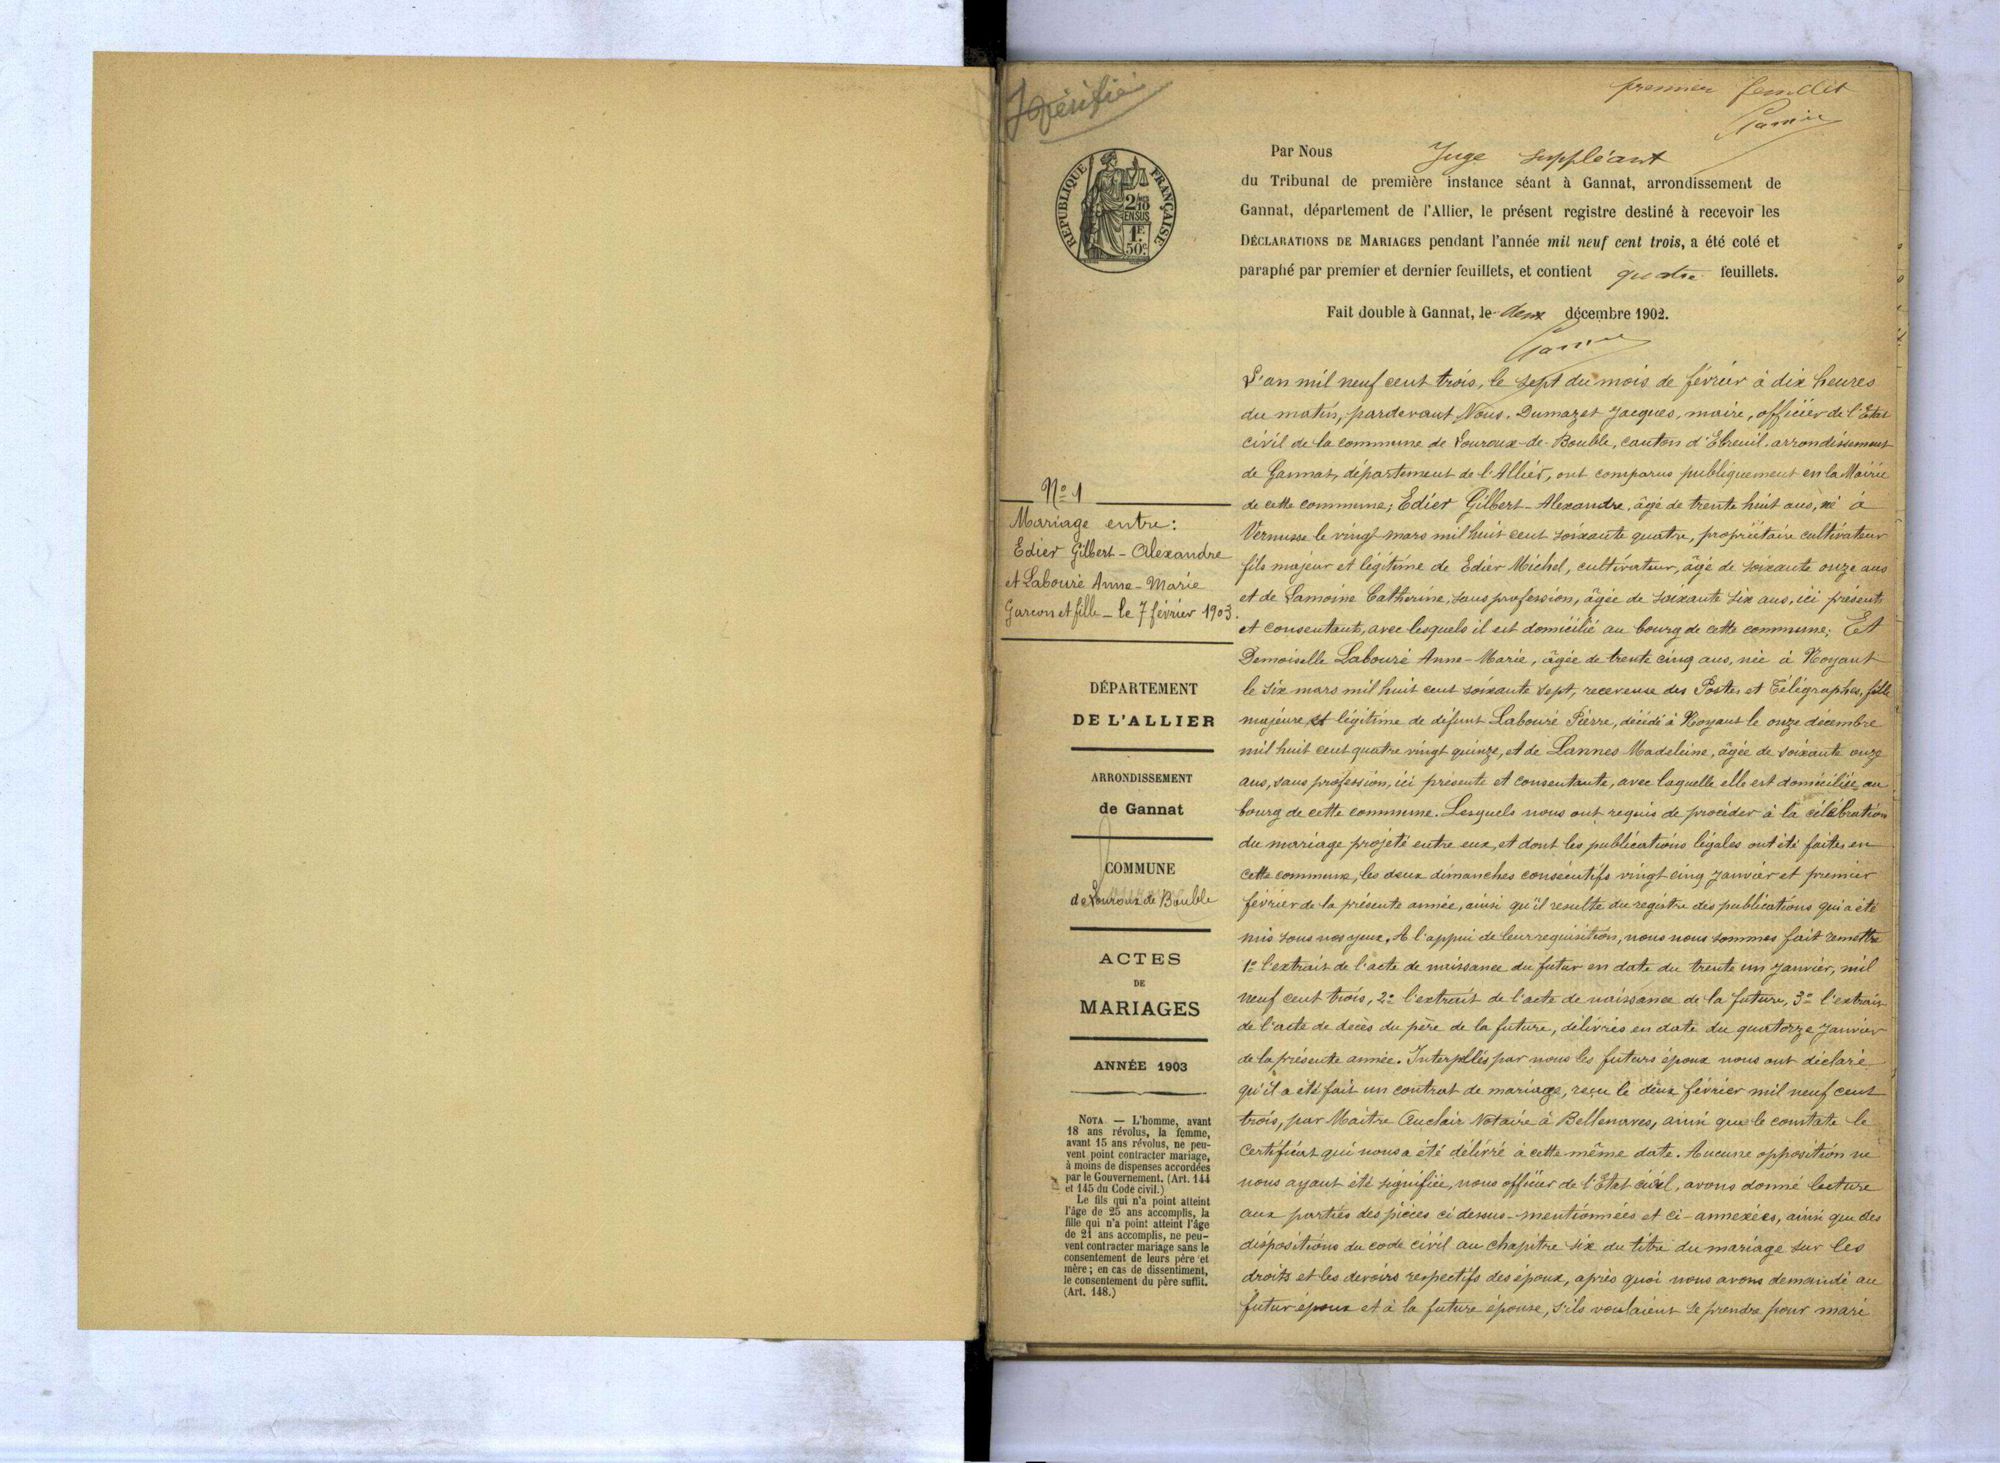 Vérifié
premier feuillet
RÉPUBLIQUE FRANÇAISE
2/10
EN SUS
1F
50c
Par Nous Juge suppléant
du Tribunal de première instance séant à Gannat, arrondissement de
Gannat, département de l'Allier, le présent registre destiné à recevoir les
DÉCLARATIONS DE MARIAGES pendant l'année mil neuf cent trois, a été coté et
paraphé par premier et dernier feuillets, et contient quatre feuillets.
Fait double à Gannat, le deux décembre 1902.
No 1
Mariage entre:
Edier Gilbert-Alexandre
et Labouré Anne-Marie
Garçon et fille - le 7 février 1903.
DÉPARTEMENT
DE L'ALLIER
ARRONDISSEMENT
de Gannat
COMMUNE
de Louroux de Bouble
ACTES
DE
MARIAGES
ANNÉE 1903
NOTA. — L'homme, avant
18 ans révolus, la femme,
avant 15 ans révolus, ne peu-
vent point contracter mariage,
à moins de dispenses accordées
par le Gouvernement. (Art. 144
et 145 du Code civil.)
Le fils qui n'a point atteint
l'âge de 25 ans accomplis, la
fille qui n'a point atteint l'âge
de 21 ans accomplis, ne peu-
vent contracter mariage sans le
consentement de leurs père et
mère; en cas de dissentiment,
le consentement du père suffit.
(Art. 148.)
L'an mil neuf cent trois, le sept du mois de février à dix heures
du matin, pardevant Nous, Dumazet Jacques, maire, officier de l'Etat
civil de la commune de Louroux-de-Bouble, canton d'Ebreuil, arrondissement
de Gannat, département de l'Allier, ont comparus publiquement en la Mairie
de cette commune; Edier Gilbert-Alexandre, âgé de trente huit ans, né à
Vernusse le vingt mars mil huit cent soixante quatre, propriétaire cultivateur
fils majeur et légitime de Edier Michel, cultivateur, âgé de soixante onze ans
et de Lamoine Catherine, sans profession, âgée de soixante six ans, ici présents
et consentants, avec lesquels il est domicilié au bourg de cette commune; Et
Demoiselle Labouré Anne-Marie, âgée de trente cinq ans, née à Noyant
le six mars mil huit cent soixante sept, receveuse des Postes et Télégraphes, fille
majeure et légitime de défunt Labouré Pierre, décédé à Noyant le onze décembre
mil huit cent quatre vingt quinze, et de Lannes Madeleine, âgée de soixante onze
ans, sans profession, ici présente et consentante, avec laquelle elle est domiciliée au
bourg de cette commune. Lesquels nous ont requis de procéder à la célébration
du mariage projeté entre eux, et dont les publications légales ont été faites en
cette commune, les deux dimanches consécutifs vingt cinq janvier et premier
février de la présente année, ainsi qu'il resulte du registre des publications qui a été
mis sous nos yeux. A l'appui de leur requisition, nous nous sommes fait remettre
1o l'extrait de l'acte de naissance du futur en date du trente un janvier, mil
neuf cent trois, 2o l'extrait de l'acte de naissance de la future, 3o l'extrait
de l'acte de décès du père de la future, délivrés en date du quatorze janvier
de la présente année. Interpellés par nous les futurs époux nous ont déclaré
qu'il a été fait un contrat de mariage, reçu le deux février mil neuf cent
trois, par Maître Auclair Notaire à Bellenaves, ainsi que le constate le
certificat qui nous a été délivré à cette même date. Aucune opposition ne
nous ayant été signifiée, nous officier de l'Etat civil, avons donné lecture
aux parties des pièces ci dessus-mentionnées et ci-annexées, ainsi que des
dispositions du code civil au chapitre six du titre du mariage sur les
droits et les devoirs respectifs des époux, après quoi nous avons demandé au
futur époux et à la future épouse, s'ils voulaient se prendre pour mari